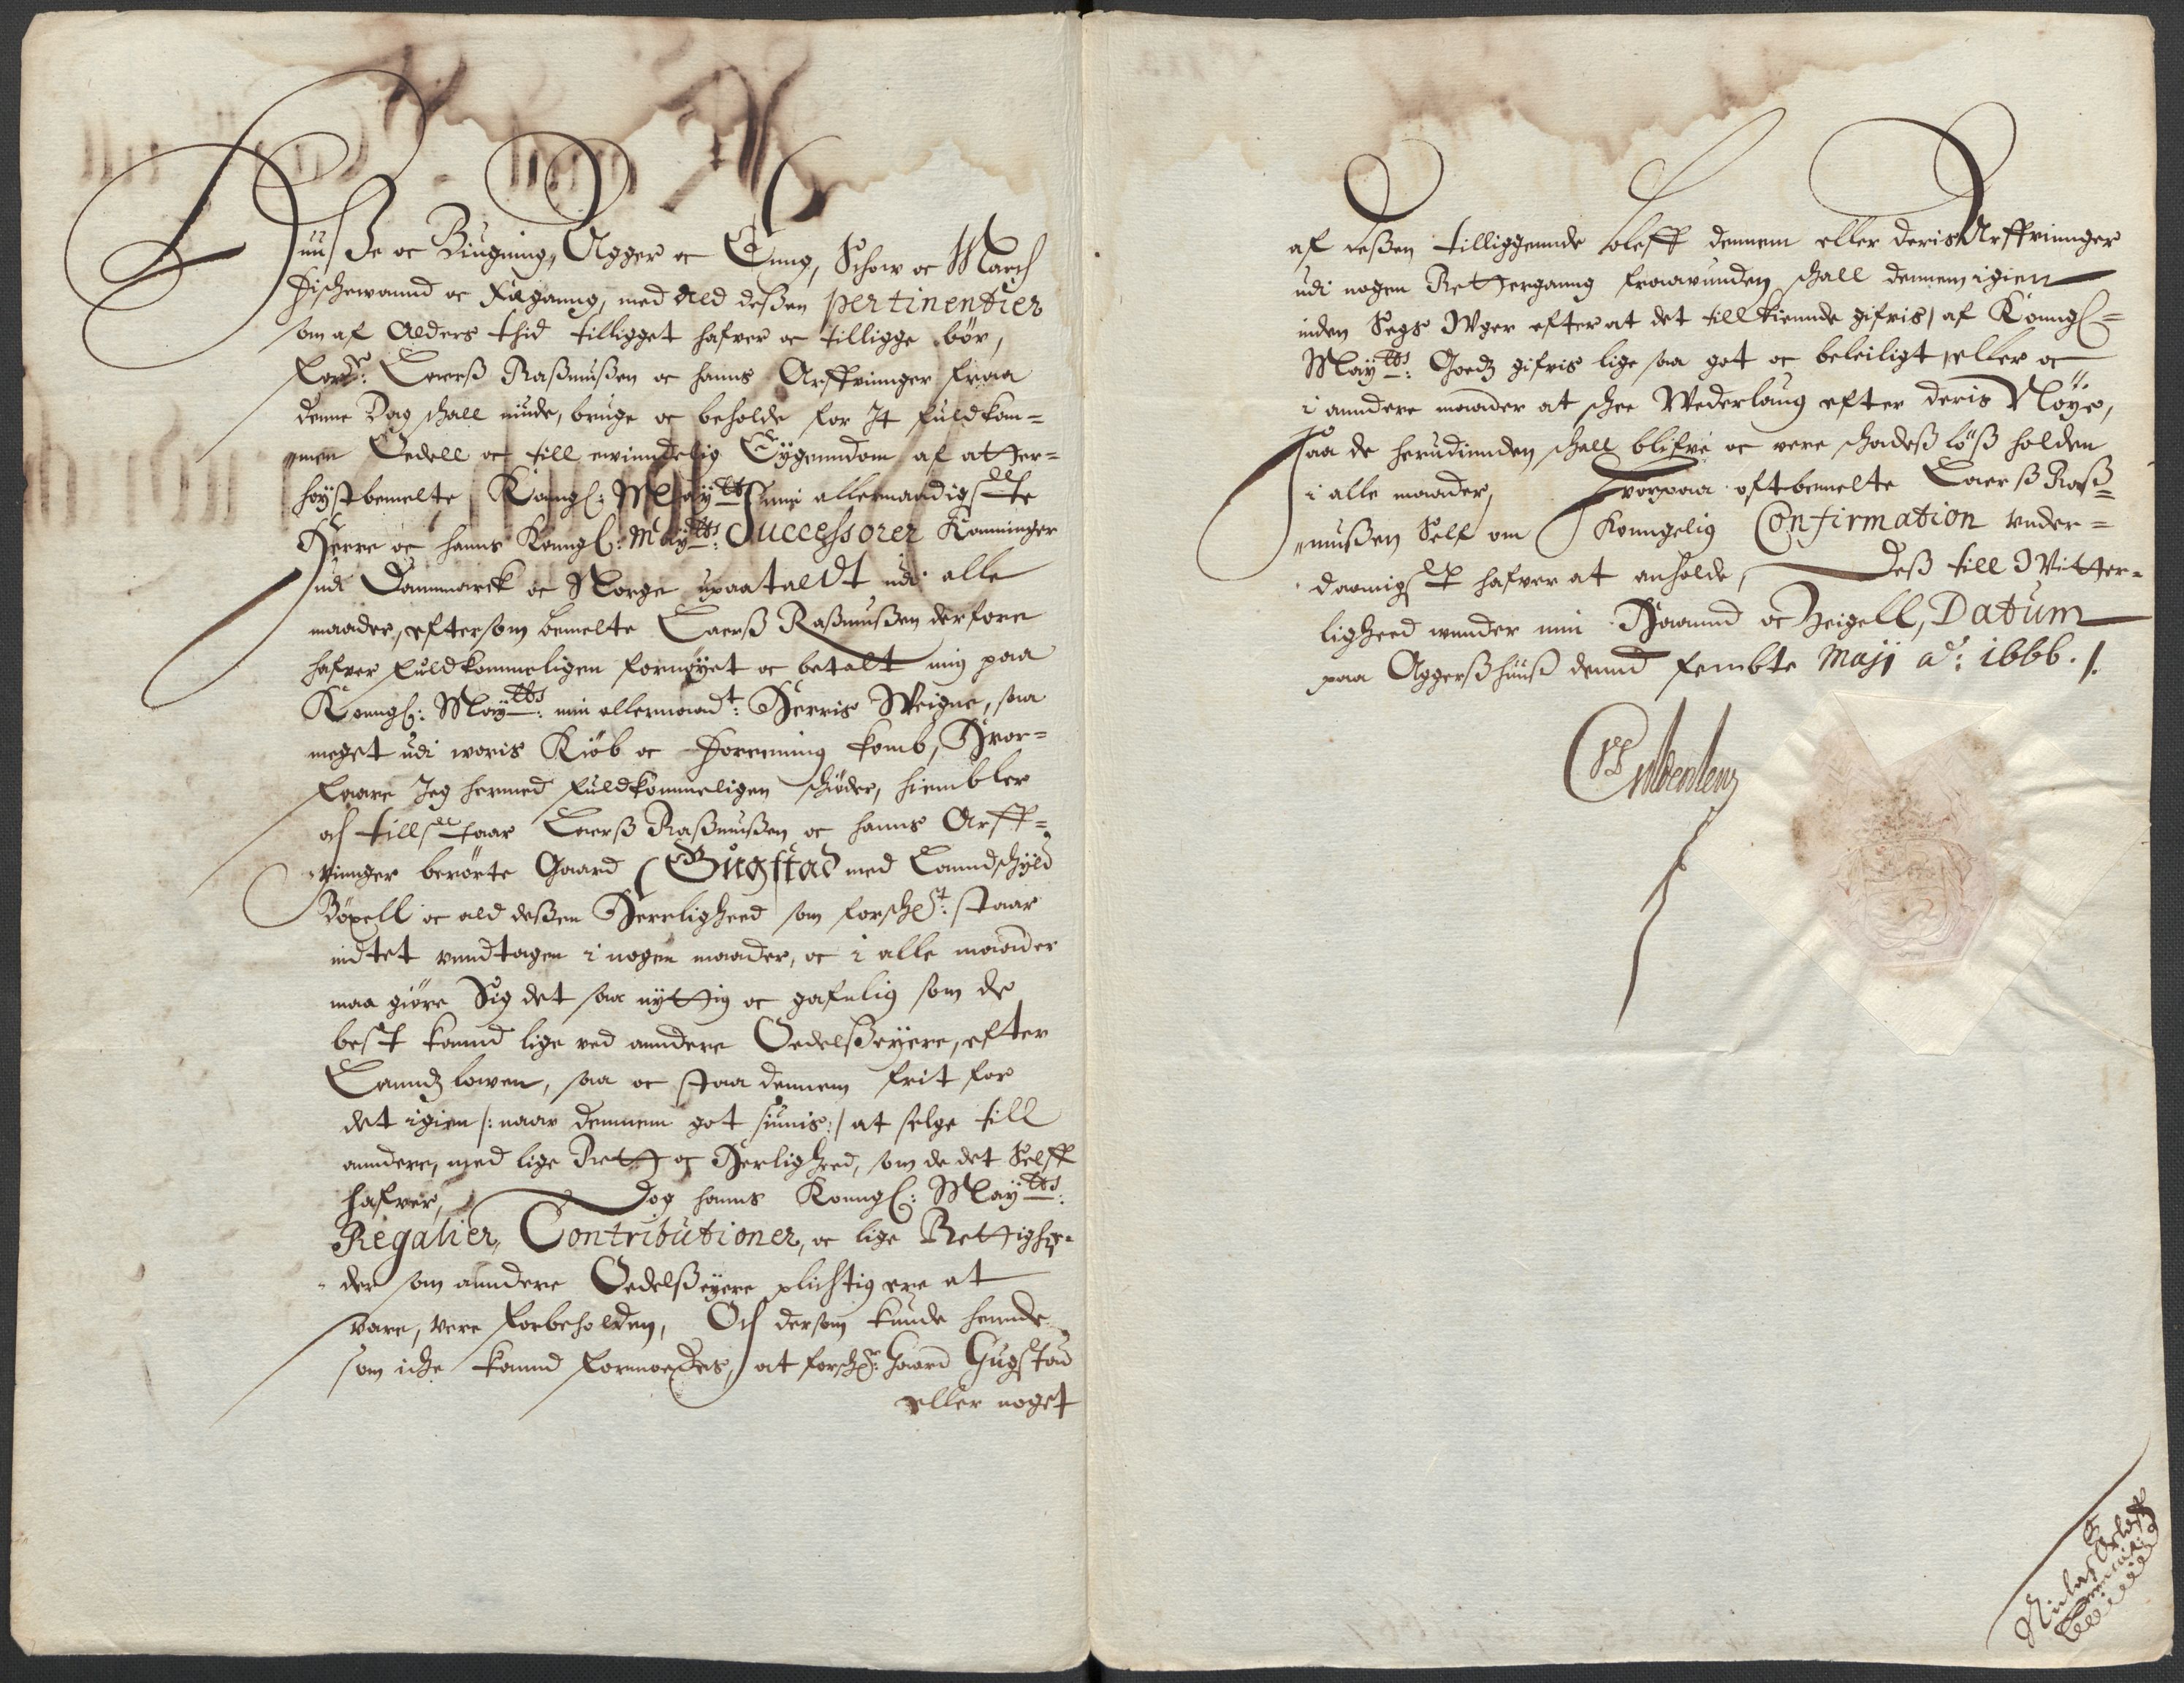 Huuse oc Biugning, Agger oc Enng, Schow oc March
Fischewannd oc Fæganng, med Ald deßen pertinentier
som af Alders thid tilligget hafver oc tilligge bør,
Forsr: Laerß Raßmußen oc hanns Arffvinnger fraa
denne Dag schall niude, bruge oc beholde for It fuldkom=
men Oedell oc till ewinndelig Eygenndom af atter=
høystbemelte Konngl: Mayts min allernaadigste
Herre oc hanns Konngl: Mayts: Successorer Konninger
udi Dannmarck oc Norge upaataldt udi alle
maader, eftersom bemelte Laerß Raßmußen derfore
hafver fuldkommeligen fornøyet oc betalt mig paa
Konngl: Mayts: min allernaadt: Herris Weigne, saa
meget udi woris Kiøb oc Foreening komb, Hvor=
faare Jeg hermed fuldkommeligen schiøder, hiembler
och tillstaar Laerß Raßmußen oc hanns Arff=
vinnger berørte Gaard Gugstad med Lanndschyld
Bøxell oc ald deßen Herrligheed som forschst: staar
indtet unndtagen i nogen maader, oc i alle maader
maa giøre Sig det saa nyttig oc gafnlig som de
best kannd lige ved anndere Oedelßeyere, efter
Lanndz lowen, saa oc staa dennem frit for
det igien /: naar dennem got siunis :/ at selge till
anndere, med lige Rett oc Herligheed, som de det Selff
hafver, Dog hanns Konngl: Mayts:
Regalier, Contributioner, oc lige Rettighe=
der som anndere Oedelßeyere plichtig ere at
svare, vere forbeholden, Och dersom kunde hennde
som iche kannd formoedes, at forschr: Gaard Gugstad
eller noget
af deßen tilliggennde bleff dennem eller deris Arffvinnger
udi nogen Retterganng fraavunden, schall dennem igien
inden Segs Wger efter at det tillkiennde gifvis, af Konngl=
Mayts: Goedz gifvis lige saa got oc beleiligt, eller oc
i anndere maader at schee Wederlaug efter deris Nøye,
saa de herudinnden schall blifve oc vere schadeßløß holden
i alle maader, Hvorpaa oftbemelte Laerß Raß=
mußen Self om Konngelig Confirmation under=
daanigst hafver at anholde, Deß till Witter=
ligheed unnder min Haannd oc Zeigell, Datum
paa Aggerßhuuß dennd fembte Maji ao: 1666 ./.